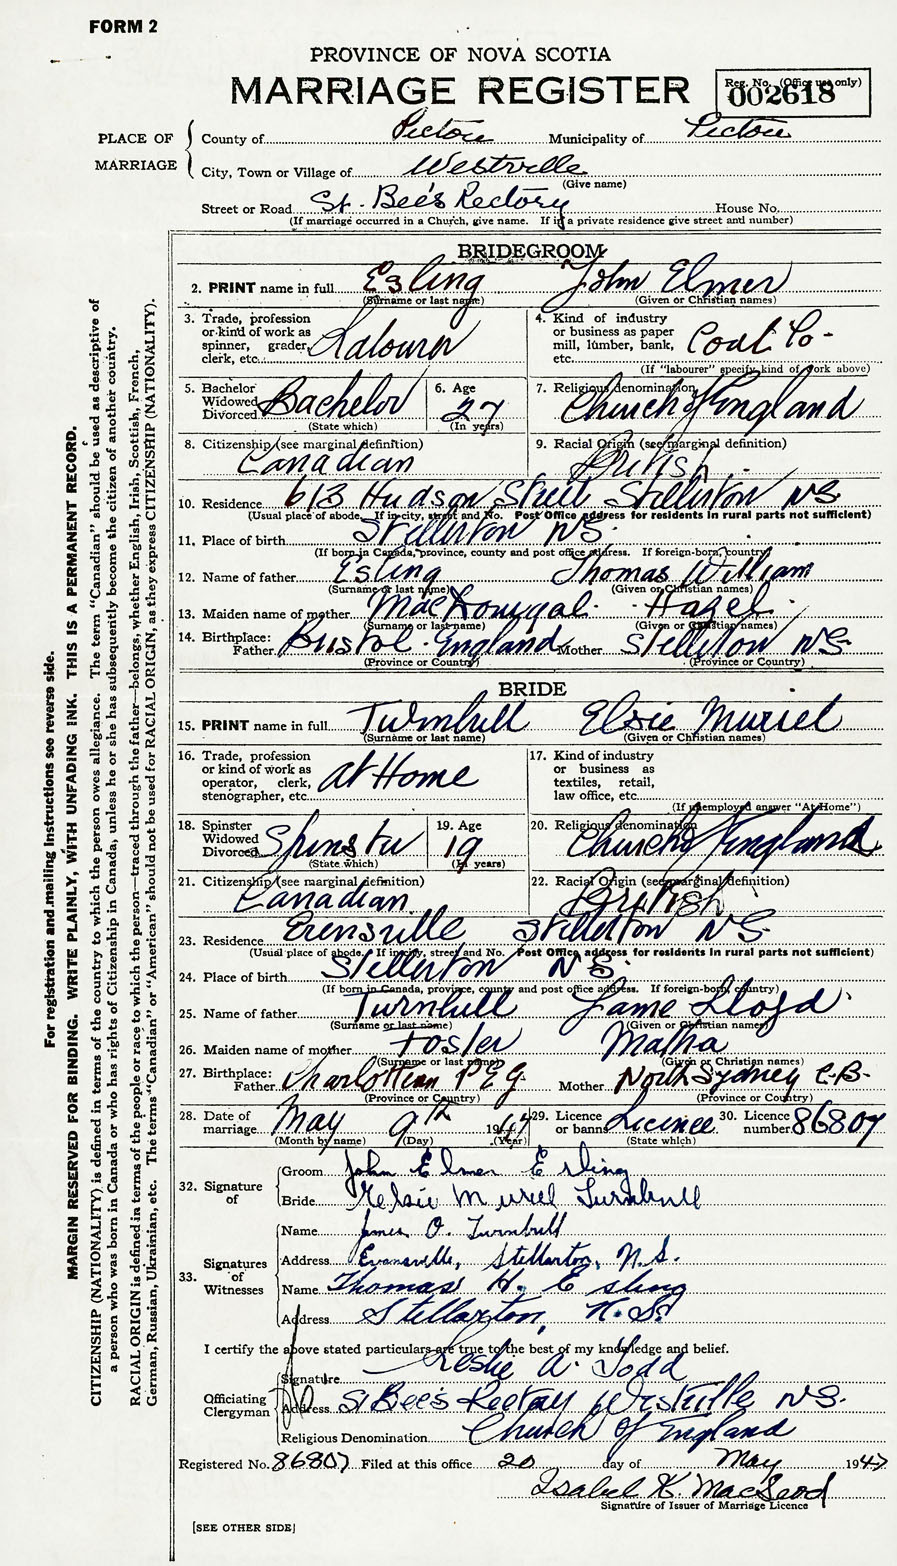 FORM 2
PROVINCE OF NOVA SCOTIA
MARRIAGE REGISTER
Reg. No. (Office use only)
002618
PLACE OF MARRIAGE
County of Pictou Municipality of Pictou
City, Town or Village of Westville
(Give name)
Street or Road St. Bee's Rectory House No.
(If marriage occurred in a Church, give name. If in a private residence give street and number)
BRIDEGROOM
2. PRINT name in full Esling John Elmer
(Surname or last name) (Given or Christian names)
3. Trade, profession or kind of work as spinner, grader, clerk, etc. Labourer
4. Kind of industry or business as paper mill, lumber, bank, etc. Coal Co-
(If "labourer" specify kind of work above)
5. Bachelor Widowed Divorced Bachelor
(State which)
6. Age 27
(In years)
7. Religious denomination Church of England
8. Citizenship (see marginal definition) Canadian
9. Racial Origin (see marginal definition) British
10. Residence 613 Hudson Street Stellerton NS
(Usual place of abode. If in city, street and No. Post Office address for residents in rural parts not sufficient)
11. Place of birth Stellerton NS
(If born in Canada, province, county and post office address. If foreign-born, country)
12. Name of father Esling Thomas William
(Surname or last name) (Given or Christian names)
13. Maiden name of mother MacDougal Hazel
(Surname or last name) (Given or Christian names)
14. Birthplace: Father Bristol England Mother Stellerton NS
(Province or Country) (Province or Country)
BRIDE
15. PRINT name in full Turnbull Elsie Muriel
(Surname or last name) (Given or Christian names)
16. Trade, profession or kind of work as operator, clerk, stenographer, etc. At Home
17. Kind of industry or business as textiles, retail, law office, etc.
(If unemployed answer "At Home")
18. Spinster Widowed Divorced Spinster
(State which)
19. Age 19
(In years)
20. Religious denomination Church of England
21. Citizenship (see marginal definition) Canadian
22. Racial Origin (see marginal definition) British
23. Residence Stellerton NS
(Usual place of abode. If in city, street and No. Post Office address for residents in rural parts not sufficient)
24. Place of birth Stellerton NS
(If born in Canada, province, county and post office address. If foreign-born, country)
25. Name of father Turnbull Jame Lloyd
(Surname or last name) (Given or Christian names)
26. Maiden name of mother Foster Matha
(Surname or last name) (Given or Christian names)
27. Birthplace: Father Mother North Sydney C.B.
(Province or Country) (Province or Country)
28. Date of marriage May 9th 1947
(Month by name) (Day) (Year)
29. Licence or banns Licence
(State which)
30. Licence number 86807
32. Signature of
Groom John Elmer Esling
Bride Elsie Muriel Turnbull
33. Signatures of Witnesses
Name James O. Turnbull
Address Evansville, Stellarton, N.S.
Name Thomas H. Esling
Address Stellarton, N.S.
I certify the above stated particulars are true to the best of my knowledge and belief.
Officiating Clergyman
Signature Leslie A. Todd
Address St Bee's Rectory Westville NS.
Religious Denomination Church of England
Registered No. 86807 Filed at this office 20 day of May 1947
Isabel K. MacLeod
Signature of Issuer of Marriage Licence
[SEE OTHER SIDE]
For registration and mailing instructions see reverse side.
MARGIN RESERVED FOR BINDING. WRITE PLAINLY, WITH UNFADING INK. THIS IS A PERMANENT RECORD.
CITIZENSHIP (NATIONALITY) is defined in terms of the country to which the person owes allegiance. The term "Canadian" should be used as descriptive of
a person who was born in Canada or who has rights of Citizenship in Canada, unless he or she has subsequently become the citizen of another country.
RACIAL ORIGIN is defined in terms of the people or race to which the person—traced through the father—belongs, whether English, Irish, Scottish, French,
German, Russian, Ukrainian, etc. The terms "Canadian" or "American" should not be used for RACIAL ORIGIN, as they express CITIZENSHIP (NATIONALITY).